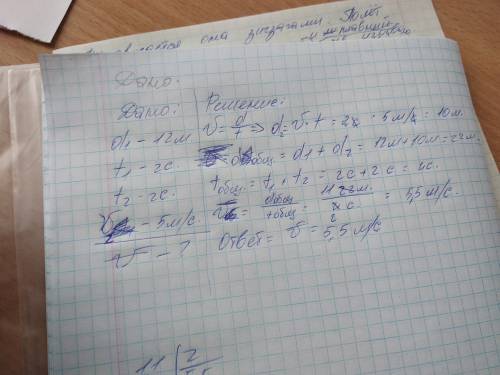 она зигзагами. Полёт
Дано:
Дано: Решение:
d1 - 12 м. v = d/t => d2 = v · t = 2с · 5 м/с = 10 м.
t1 - 2с. dобщ = d1 + d2 = 12м + 10м = 22м.
t2 - 2с. tобщ = t1 + t2 = 2с + 2с = 4с.
v - 5 м/с. v = dобщ/tобщ = 22м/4с = 5,5 м/с.
v - ? Ответ = v = 5,5 м/с
11 | 2